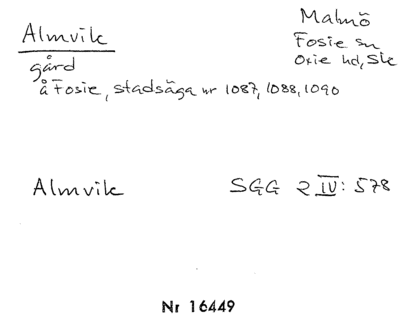 Almvik
Malmö
Fosie sn
Oxie hd, Sk
gård
å Fosie, stadsäga nr 1087, 1088, 1090
Almvik
SGG 2 IV: 578
Nr 16449